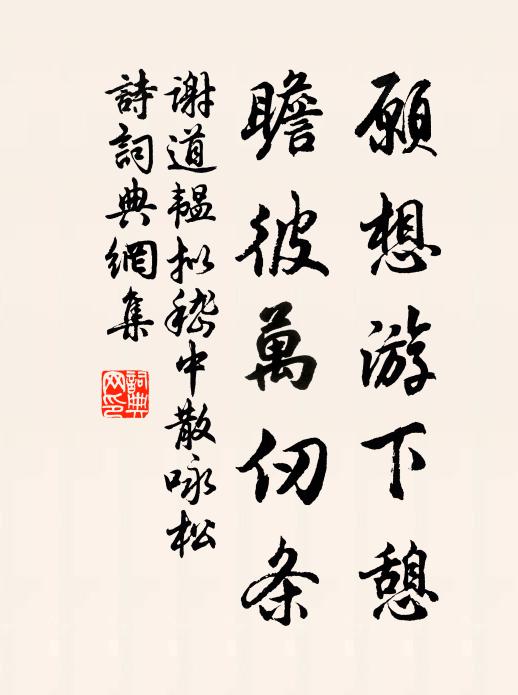 願想游下憩
瞻彼萬仞条
谢道韫拟嵇中散咏松
詩詞典網集
詞典网印